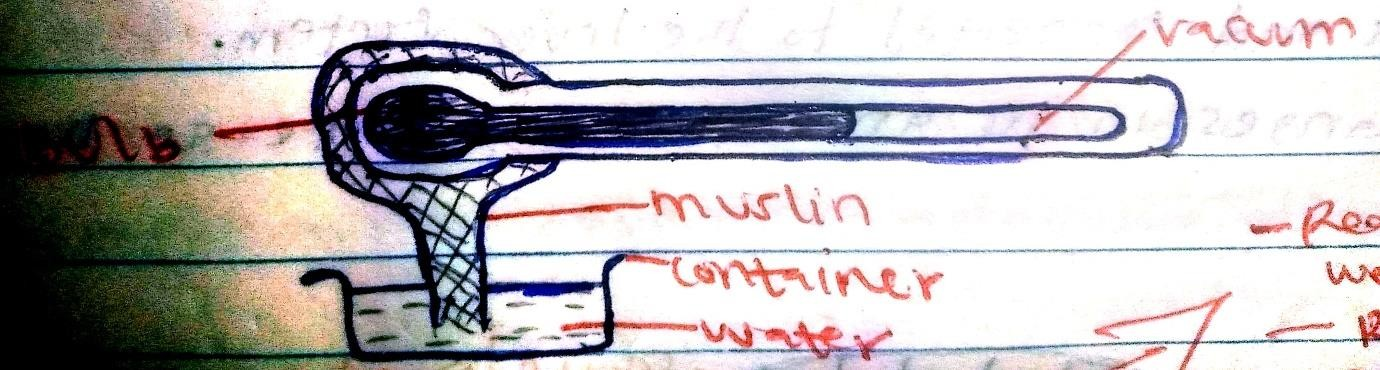 vacum
Bulb
muslin
container
water